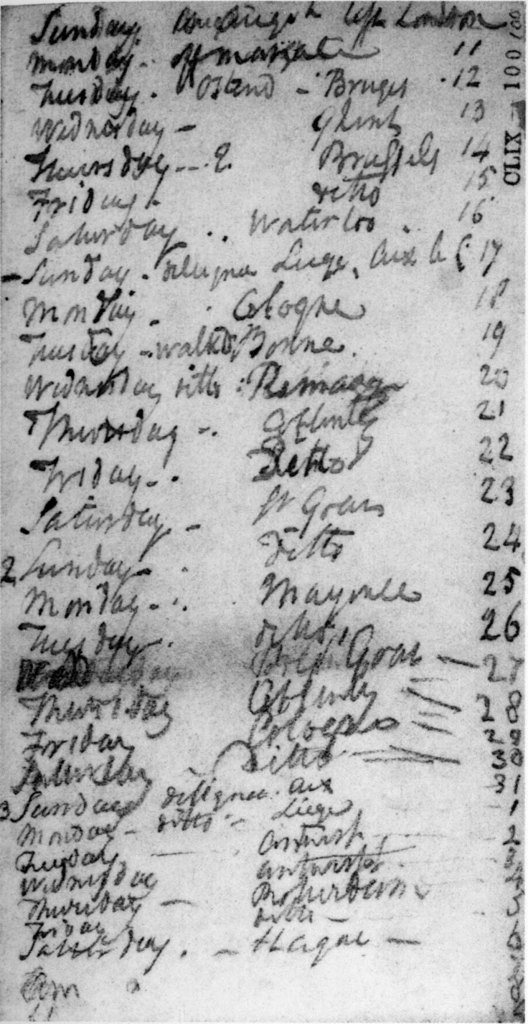 Sunday. August left London
Monday. off margate 11
Tuesday. Ostend - Bruges .12
Wednesday - Ghent 13
Thursday -- Brussels 14
Friday - ditto 15
Saturday . . Waterloo . 16
- Sunday . diligence Liege, Aix la C 17
Monday . . Cologne 18
Tuesday - walkd Bonne. 19
Wednesday ditto : Remagen 20
Thursday -. Coblentz 21
Friday - . Ditto 22
Saturday - St Goars 23
2 Sunday - . Ditto 24
Monday - . . Mayence 25
Tuesday . ditto, 26
Goar - 27
Thursday Coblentz 28
Friday Cologne 29
Saturday Ditto 30
3 Sunday diligence Aix 31
Monday - ditto - Liege 1
Tuesday Antwerp. 2
Wednesday antwerp. 3
Thursday - Rotterdam
Friday ditto
Saturday . - Hague -
CLIX 100